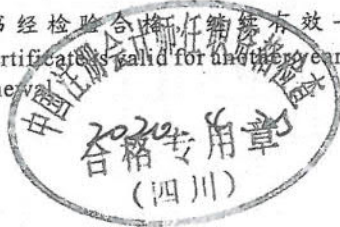 书经检验合格，继续有效一
ertificate is valid for another year
newal
中国注册会计师任职资格检查
2020
合格专用章
(四川)